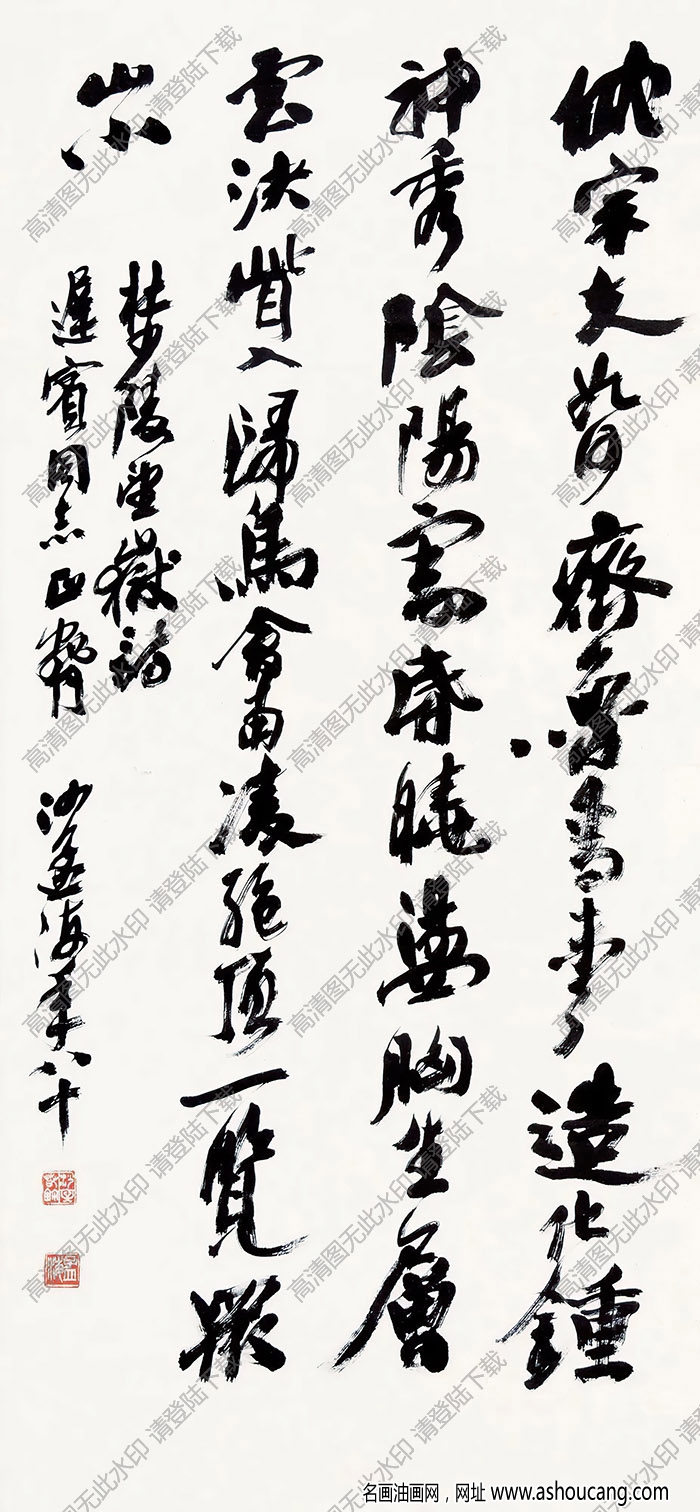 岱宗夫如何齊魯青未了造化鍾
神秀陰陽割昏曉盪胸生層
雲決眥入歸鳥會當凌絕頂一覽眾
山
杜少陵望嶽詩
遲賓同志正 沙孟海年八十
孟海
高清图无此水印 请登陆下载
名画油画网，网址 www.ashoucang.com